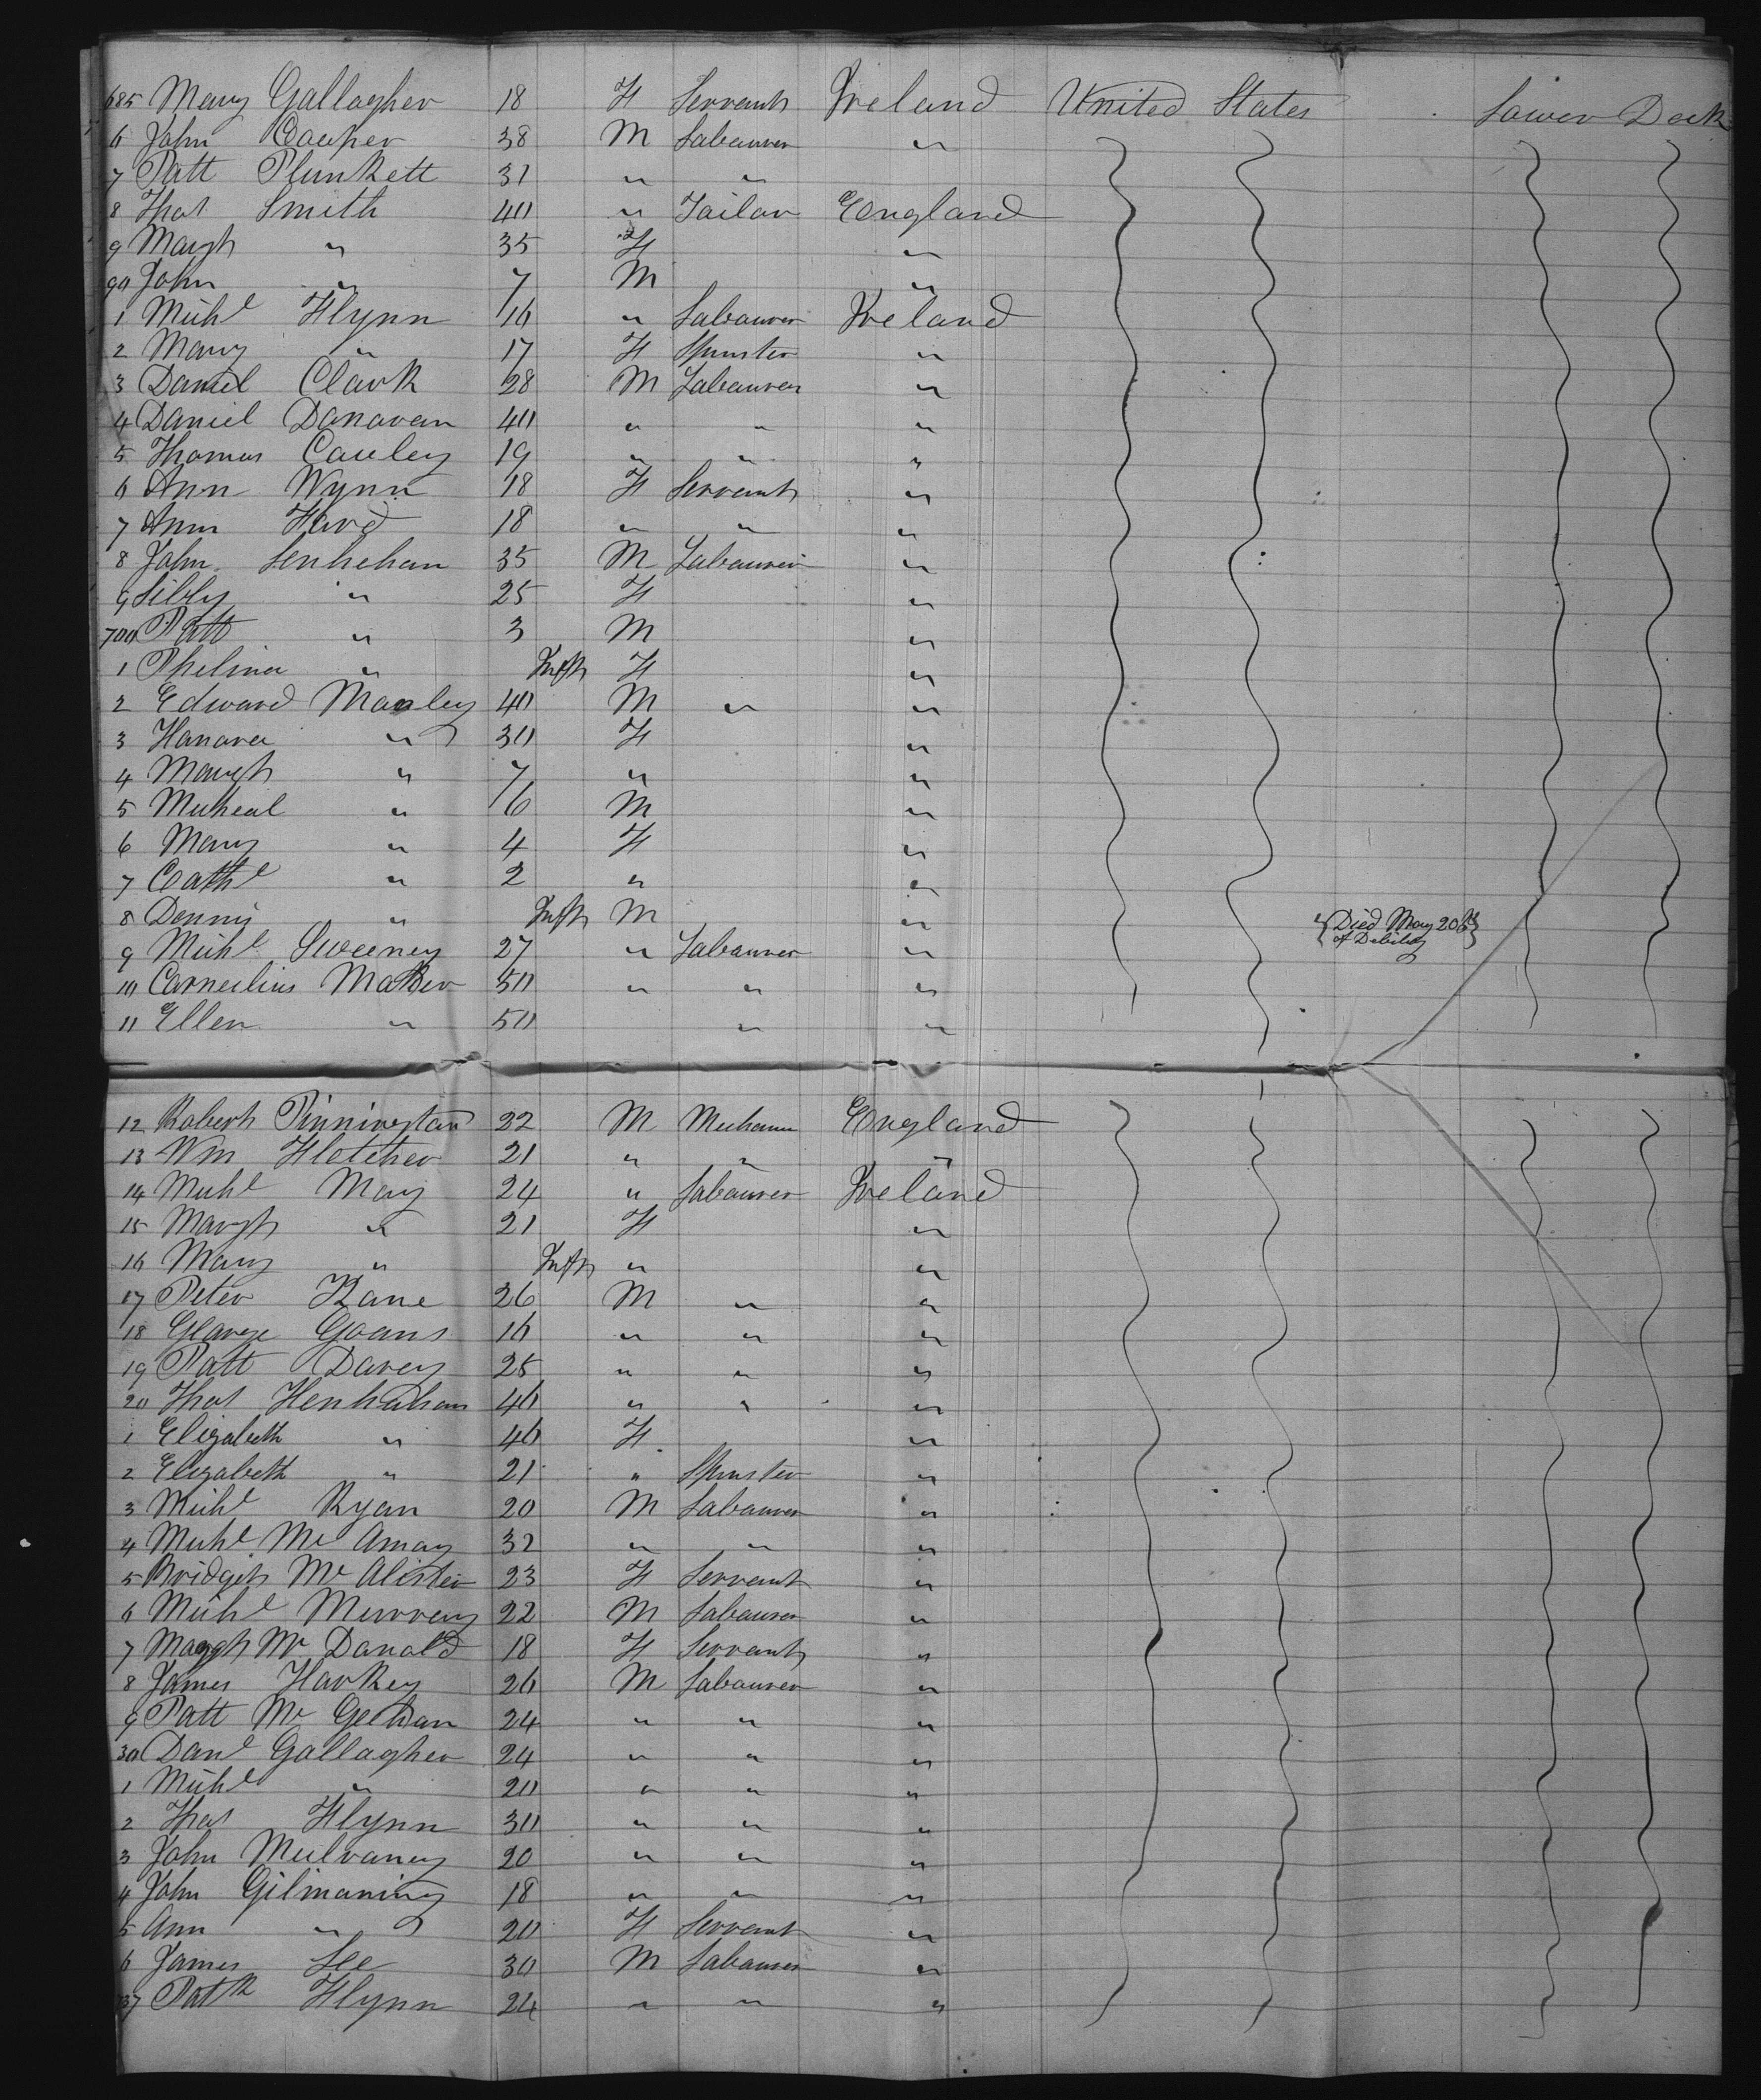 685 Mary Gallagher 18 F Servant Ireland United States Lower Deck
6 John Cauper 38 M Labourer "
7 Patt Plunkett 31 " "
8 Thos Smith 40 " Tailor England
9 Margt " 35 F "
90 John " 7 M "
1 Michl Flynn 16 " Labourer Ireland
2 Mary " 17 F Spinster "
3 Daniel Clark 28 M Labourer "
4 Daniel Donavan 40 " " "
5 Thomas Cauley 19 " " "
6 Ann Wynn 18 F Servant "
7 Ann Ford 18 " " "
8 John Lenhehan 35 M Labourer "
9 Libby " 25 F "
700 Patt " 3 M "
1 Phelina " Inft F "
2 Edward Manley 40 M " "
3 Hanora " 30 F "
4 Margt " 7 " "
5 Micheal " 6 M "
6 Mary " 4 F "
7 Cathe " 2 " "
8 Dennis " Inft M " Died May 20th
of Debility
9 Michl Sweeney 27 " Labourer "
10 Carnelius Maher 50 " " "
11 Ellen " 50 " "
12 Robert Pinnington 22 M Mechanic England
13 Wm Fletcher 21 " " "
14 Michl May 24 " Labourer Ireland
15 Margt " 21 F "
16 Mary " Inft " "
17 Peter Kane 26 M " "
18 George Goans 16 " " "
19 Patt Davey 25 " " "
20 Thos Henhahan 46 " " "
1 Elizabeth " 46 F "
2 Elizabeth " 21 " Spinster "
3 Michl Ryan 20 M Labourer "
4 Michl Mc Amay 32 " " "
5 Bridget Mc Alister 23 F Servant "
6 Michl Murray 22 M Labourer "
7 Margt Mc Danald 18 F Servant "
8 James Harkey 26 M Labourer "
9 Patt Mc 24 " " "
30 Danl Gallagher 24 " " "
1 Michl " 20 " " "
2 Thos Flynn 30 " " "
3 John Mulvaney 20 " " "
4 John Gilmaning 18 " " "
5 Ann " 20 F Servant "
6 James Lee 30 M Labourer "
37 Patk Flynn 24 " " "